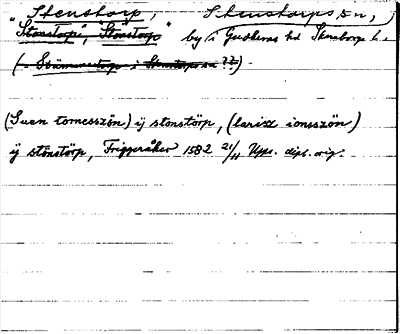 Stenstorp, Stenstorps sn,
"Stönstorp", Stönstorp" by i Gudhems hd Skaraborgs l.
(= Strämmestorp i Stenstorps sn ??)
(Suen tomesszön) ÿ stönstörp, (larisz ionsszön)
ÿ stönstörp, Friggeråker 1582 21/11 Upps. dipl. orig.